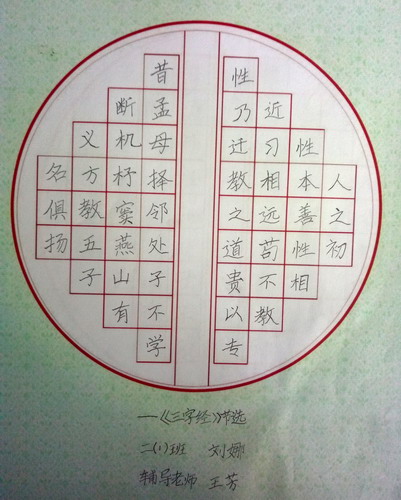 人之初
性本善性相
近习相远苟不教
性乃迁教之道贵以专
昔孟母择邻处子不学
断机杼窦燕山有
义方教五子
名俱扬
—《三字经》节选
二(1)班 刘娜
辅导老师 王芳